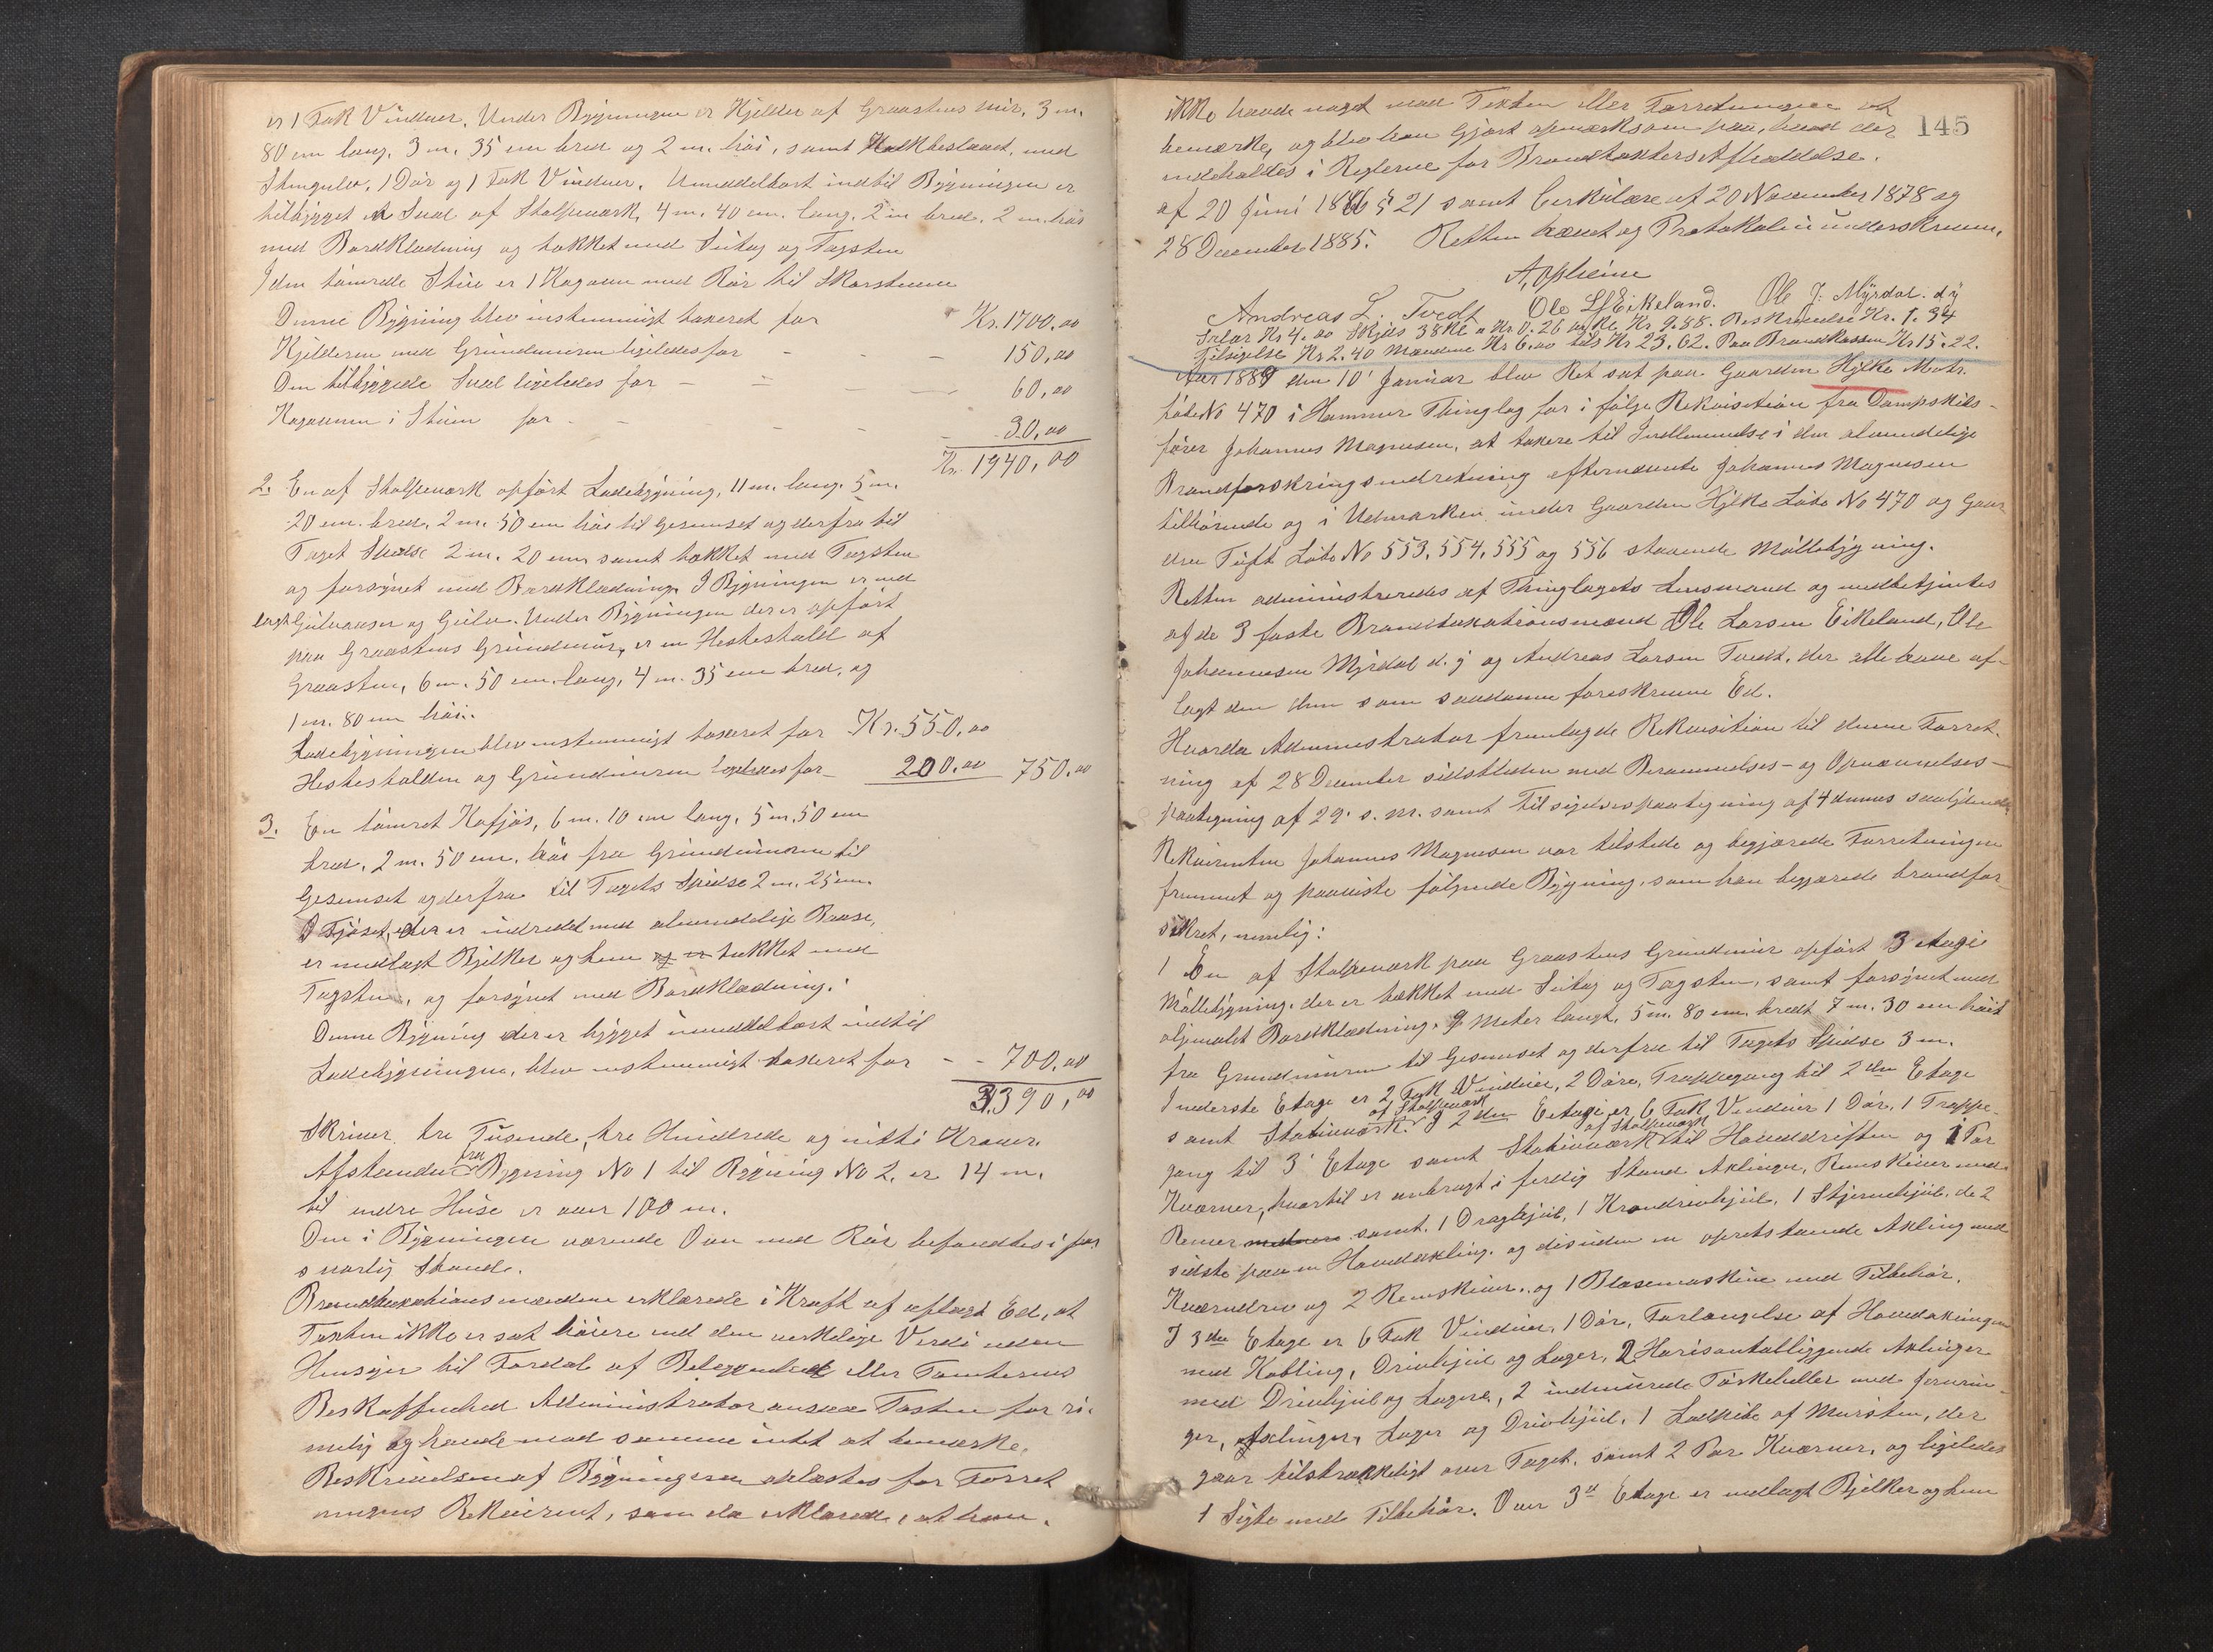 er 1 Fak Vinduer. Under Bygningen er Kjelder af Graastens Mur, 3 m.
80 cm lang, 3 m. 35 cm bred og 2 m. høi, samt Kalkbeslaaet, med
Stengulv, 1 Dör og 1 Fak Vinduer. Umiddelbart indtil Bygningen er
tilbygget en Sval af Stolpeværk, 4 m. 40 cm. lang, 2 m bred, 2 m. høi
med Bordklædning og tækket med Sutag og Tagsten
I den tømrede Stue er 1 Kagovn med Rör til Skorstenen
Denne Bygning blev enstemmigt taxeret for Kr. 1700,00
Kjelderen med Grundmuren ligeledes for - - - 150,00
Den tilbyggede Sval ligeledes for - - - - 60,00
Kagovnen i Stuen for - - - - - 30,00
Kr. 1940,00
2. En af Stolpeværk opfört Ladebygning, 11 m. lang, 5 m.
20 cm. bred, 2 m. 50 cm høi til Gesimset og derfra til
Taget Spidse 2 m. 20 cm, samt tækket med Tagsten
og forsynet med Bordklædning. I Bygningen er ned
lagt Gulvaaser og Gulv. Under Bygningen der er opfört
paa Graastens Grundmur, er en Hestestald af
Graasten, 6 m. 50 cm. lang, 4 m. 35 cm bred, og
1 m. 80 cm høi.
Ladebygningen blev enstemmigt taxeret for Kr. 550,00
Hestestalden og Grundmuren ligeledes for 200,00 750,00
3. En tömret Kofjös, 6 m. 10 cm lang, 5 m. 50 cm
bred, 2 m. 50 cm. høi fra Grundmuren til
Gesimset og derfra til Tagets Spidse 2 m. 25 cm.
I Fjöset, der er indredet med almindelige Baase,
er nedlagt Bjelker og hem og er tækket med
Tagsten, og forsynet med Bordklædning.
Denne Bygning der er bygget umiddelbart indtil
Ladebygningen, blev enstemmigt taxeret for - - 700,00
3,390,00
Skriver tre Tusende, tre Hundrede og nitti Kroner.
Afstanden fra Bygning No 1 til Bygning No 2, er 14 m.
til andre Huse er over 100 m.
Den i Bygningen værende Ovn med Rör befandtes i for
svarlig Stand.
Brandtaxationsmændene erklærede i Kraft af aflagt Ed, at
Taxten ikke er sat höiere end den verkelige Verdi uden
Hensyn til Fordel af Beliggenhed eller Tomternes
Beskaffenhed. Administrator ansaa Taxten for ri-
melig og havde mod samme intet at bemærke.
Beskrivelsen af Bygningerne oplæstes for Forret
ningens Rekvirent, som da erklærede, at han
145
ikke havde noget mod Taxten eller Forretningen at
bemærke, og blev han gjort opmærksom paa, hvad der
indeholdes i Reglerne for Brandtaxters Afholdelse.
af 20 Juni 1886 § 21 samt Cirkulære af 20 November 1878 og
28 December 1885. Retten hævet og Protokolen underskreven.
A, Opheim
Andreas L. Tvedt Ole L Eikeland. Ole J. Myrdal. d y
Salær Kr 4.00 Skjös 38 Kl. a Kr 0.26 Kr. 9.88. Beskrivelse Kr. 1.34
Tilsigelse Kr 2.40 Mændene Kr 6.00 tils Kr 23.62. Paa Brandkassen Kr 15.22.
Aar 1889 den 10' Januar blev Ret sat paa Gaarden Hylke Matr.
Löbe No 470 i Hammer Thinglag for i fölge Rekvisition fra Dampskibs-
förer Johannes Magnesen, at taxere til Indlemmelse i den almindelige
Brandforsikringsindretning efternævnte Johannes Magnesen
tilhörende og i Udmarken under Gaarden Hylke Löbe No 470 og Gaar
den Tuft Löbe No 553, 554, 555 og 556 staaende Möllebygning.
Retten administreredes af Thinglagets Lensmand og medbetjentes
af de 3 faste Brandtaxationsmænd Ole Larsen Eikeland, Ole
Johannesen Myrdal d. y og Andreas Larsen Tvedt, der alle have af-
lagt den dem som saadanne foreskrevne Ed.
Hvorda Administrator fremlagde Rekvisition til denne Forret-
ning af 28 December sidstleden med Berammelses- og Opnævnelses-
paategning af 29. s. m. samt Tilsigelsespaategning af 4 dennes saalydende
Rekvirenten Johannes Magnesen var tilstede og begjærede Forretningen
fremmet og paaviste fölgende Bygning, som han begjærede brandfor-
sikret, nemlig:
1 En af Stolpeværk paa Graastens Grundmur opfört 3 etagi
Möllebygning, der er tækket med Sutag og Tagsten, samt forsynet med
oljemalet Bordklædning, 9 Meter langt, 5 m. 80 cm. bredt 7 m. 30 cm höit
fra Grundmuren til Gesimset og derfra til Tagets Spidse 3 m.
I nederste Etage er 2 Fak Vinduer, 2 Döre, Trappegang til 2 den Etage
samt Stativværk af Stolpeværk. I 2 den Etage er 6 Fak Vinduer 1 Dör, 1 Trappe-
gang til 3' Etage samt Stativværk af Stolpeværk til Hoveddriften og 1 Par
Kværner, hvortil er anbragt i ferdig Stand Axlinger, Remskiver med
Remer samt 1 Draghjul, 1 Krondrivhjul, 1 Stjernehjul, de 2
sidste paa en Hovedaxling, og desuden en opretstaaende Axling med
Kværndrev og 2 Remskiver, og 1 Blæsemaskine med Tilbehör.
I 3 die Etage er 6 Fak Vinduer, 1 Dör, Forlængelse af Hovedaxlingen
med Kobling, Drivhjul og Lager, 2 Horisontalliggende Axlinger
med Drivhjul og Lagere, 2 indmurede Törkeheller med Jernrin-
ger, Axlinger, Lager og Drivhjul, 1 Ladpibe af Mursten, der
gaar tilstrækkeligt over Taget, samt 2 Par Kværner, og ligeledes
1 Sigte med Tilbehör. Over 3 d Etage er nedlagt Bjelker og hem